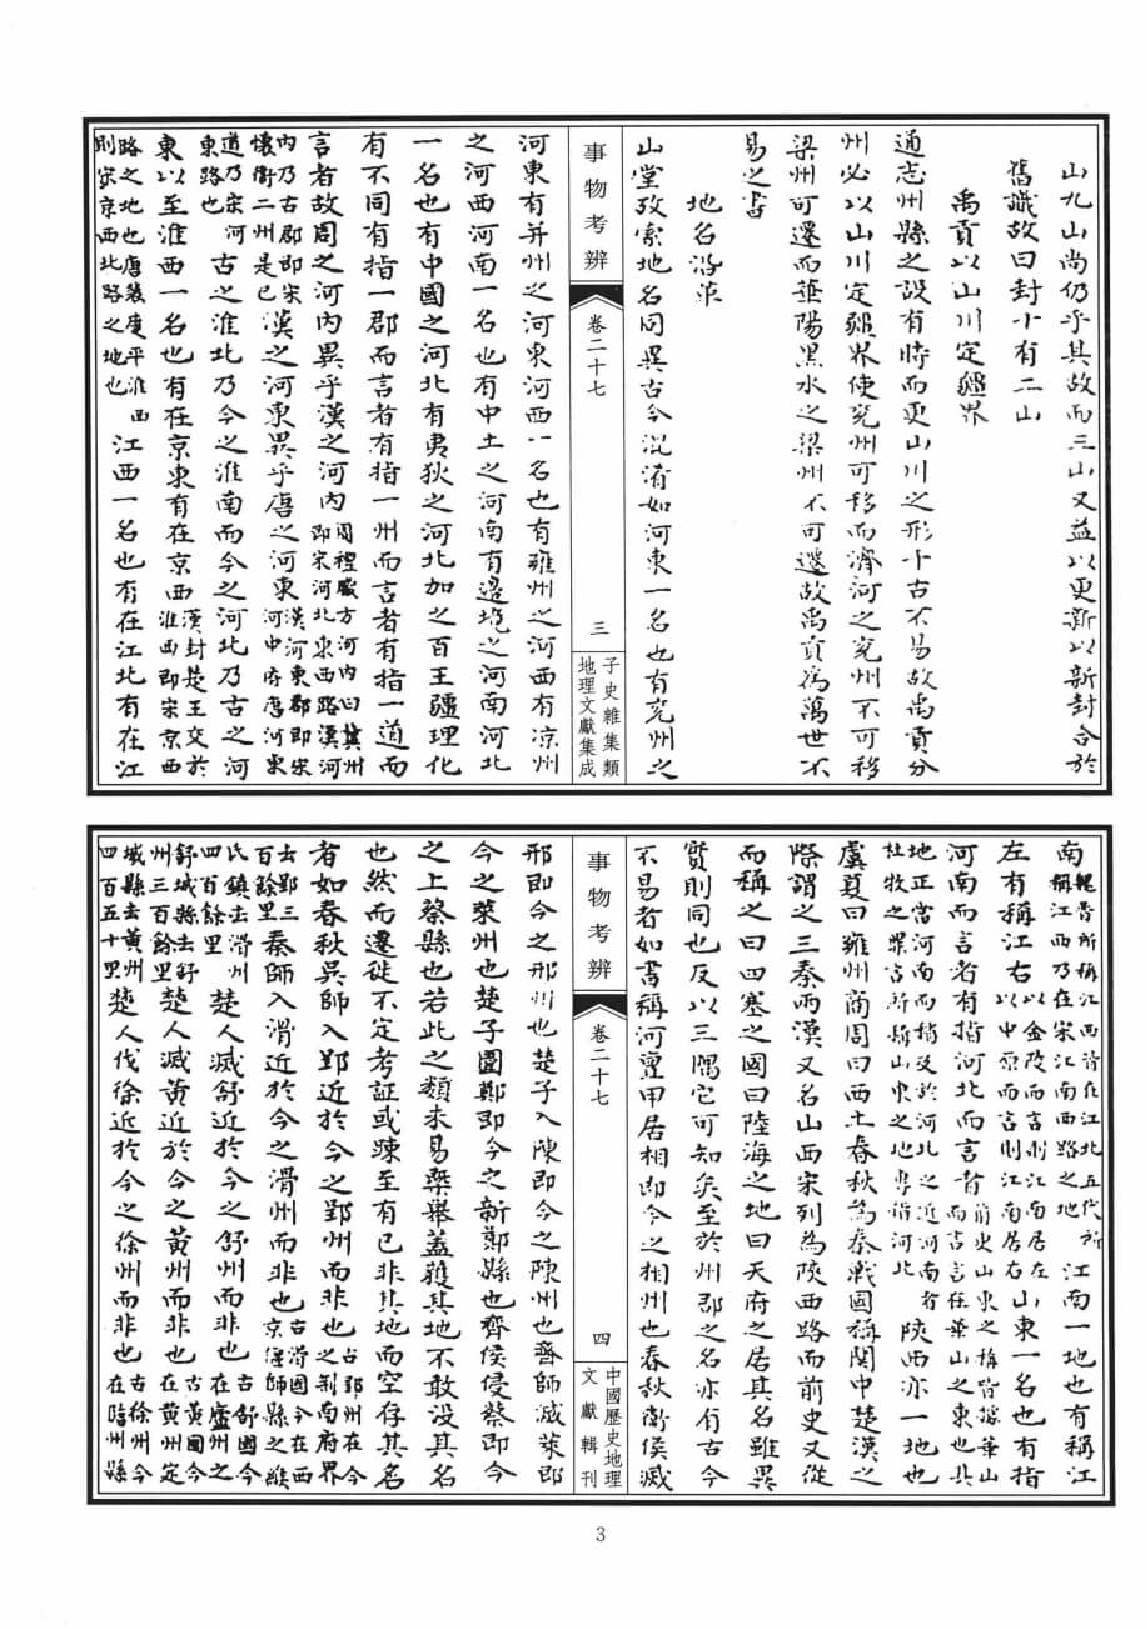 山九山尚仍乎其故而三山又益以更新以新封合於
舊議故曰封十有二山
禹貢以山川定疆界
通志州縣之設有時而更山川之形千古不易故禹貢分
州必以山川定疆界使兗州可移而濟河之兗州不可移
梁州可遷而華陽黑水之梁州不可遷故禹貢為萬世不
易之書
地名沿革
山堂攷索地名同異古今混淆如河東一名也有兗州之
事物考辨
卷二十七
三
子史雜集類
地理文獻集成
河東有并州之河東河西一名也有雍州之河西有凉州
之河西河南一名也有中土之河南有邊境之河南河北
一名也有中國之河北有夷狄之河北加之百王疆理化
有不同有指一郡而言者有指一州而言者有指一道而
言者故周之河內異乎漢之河內
周禮職方河內曰冀州
即宋河北東西路漢河
內乃古郡即宋
懷衛二州是已
漢之河東異乎唐之河東
漢河東郡即宋
河中府唐河東
道乃宋河
東路也
古之淮北乃今之淮南而今之河北乃古之河
東以至淮西一名也有在京東有在京西
漢封楚王交於
淮西即宋京西
路之地也唐裴度平淮西
則宋京西北路之地也
江西一名也有在江北有在江
南
所稱江西皆在江北五代所
稱江西乃在宋江南西路之地
江南一地也有稱江
左有稱江右
以金陵而言則江南居左
以中原而言則江南居右
山東一名也有指
河南而言者有指河北而言者
前史山東之稱皆據華山
而言言在華山之東也其
地正當河南而指及於河北之近河南者
杜牧之罪言所稱山東之地專指河北
陝西亦一地也
虞夏曰雍州商周曰西土春秋為秦戰國稱關中楚漢之
際謂之三秦兩漢又名山西宋列為陝西路而前史又從
而稱之曰四塞之國曰陸海之地曰天府之居其名雖異
實則同也反以三隅它可知矣至於州郡之名亦有古今
不易者如書稱河亶甲居相即今之相州也春秋衛侯滅
事物考辨
卷二十七
四
中國歷史地理
文獻輯刊
邢即今之邢州也楚子入陳即今之陳州也齊師滅萊即
今之萊州也楚子圍鄭即今之新鄭縣也齊侯侵蔡即今
之上蔡縣也若此之類未易槩舉蓋雖其地不敢没其名
也然而遷徙不定考証或踈至有已非其地而空存其名
者如春秋吳師入郢近於今之郢州而非也
古郢州在今
之荆南府界
去郢三
百餘里
秦師入滑近於今之滑州而非也
古滑國今在西
京偃師縣之緱
氏鎮去滑州
四百餘里
楚人滅舒近於今之舒州而非也
古舒國今
在廬州之
舒城縣去舒
州三百餘里
楚人滅黄近於今之黄州而非也
古黄國今
在黄州定
城縣去黄州
四百五十里
楚人伐徐近於今之徐州而非也
古徐州今
在臨州縣
3